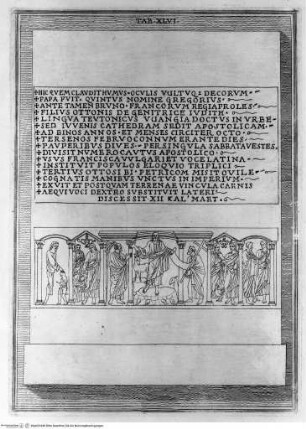 TAB. XLVI.
+HIC QVEM CLAVDIT HVMVS OCVLIS VVLTVQ: DECORVM
+PAPA FVIT QVINTVS NOMINE GREGORIVS
+ANTE TAMEN BRVNO FRANCORVM REGIA PROLES
+FILIVS OTTONIS DE GENITRICE IVDITH
+LINGVA TEVTONICVS VVANGIA DOCTVS IN VRBE
+SED IVVENIS CATHEDRAM SEDIT APOSTOLICAM
+AD BINOS ANNOS ET MENSES CIRCITER OCTO
+TER SENOS FEBRVO CONNVMERANTE DIES
+PAVPERIBVS DIVES PER SINGVLA SABBATA VESTES
+DIVISIT NVMERO CAVTVS APOSTOLICO
+VSVS FRANCISCA VVLGARI ET VOCE LATINA
+INSTITVIT POPVLOS ELOQVIO TRIPLICI
+TERTIVS OTTO SIBI PETRI COMMISIT OVILE
+COGNATIS MANIBVS VNCTVS IN IMPERIVM
+EXVIT ET POSTQVAM TERRENAE VINCVLA CARNIS
+AEQVIVOCI DEXTRO SVBSTITVIT LATERI
DISCESSIT XII KAL' MART.